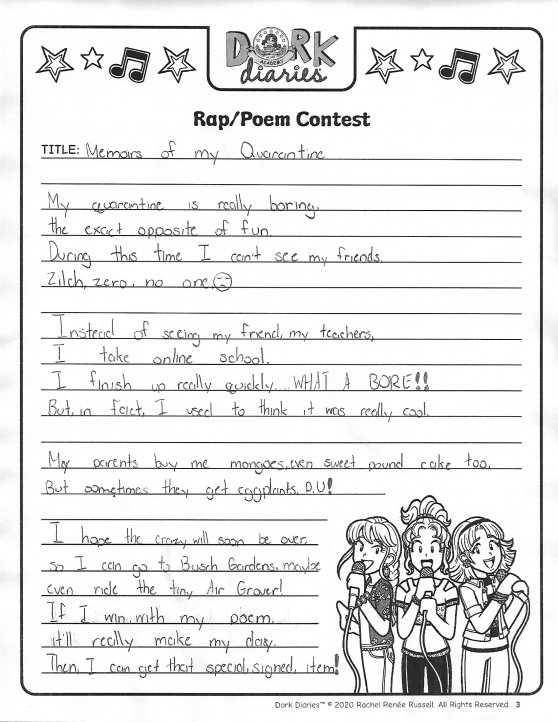 DORK
ACADEMY
diaries
Rap/Poem Contest
TITLE: Memoirs of my Quarantine
My quarantine is really boring,
the exact opposite of fun.
During this time I can't see my friends.
Zilch, zero, no one.
Instead of seeing my friend, my teachers,
I take online school.
I finish up really quickly...WHAT A BORE!!
But, in fact, I used to think it was really cool.
My parents buy me mangoes, even sweet pound cake too.
But sometimes they get eggplants, P.U!
I hope the crazy will soon be over,
so I can go to Busch Gardens, maybe
even ride the tiny Air Grover!
If I win with my poem,
it'll really make my day.
Then, I can get that special, signed, item!
Dork Diaries™ © 2020 Rachel Renée Russell. All Rights Reserved. 3